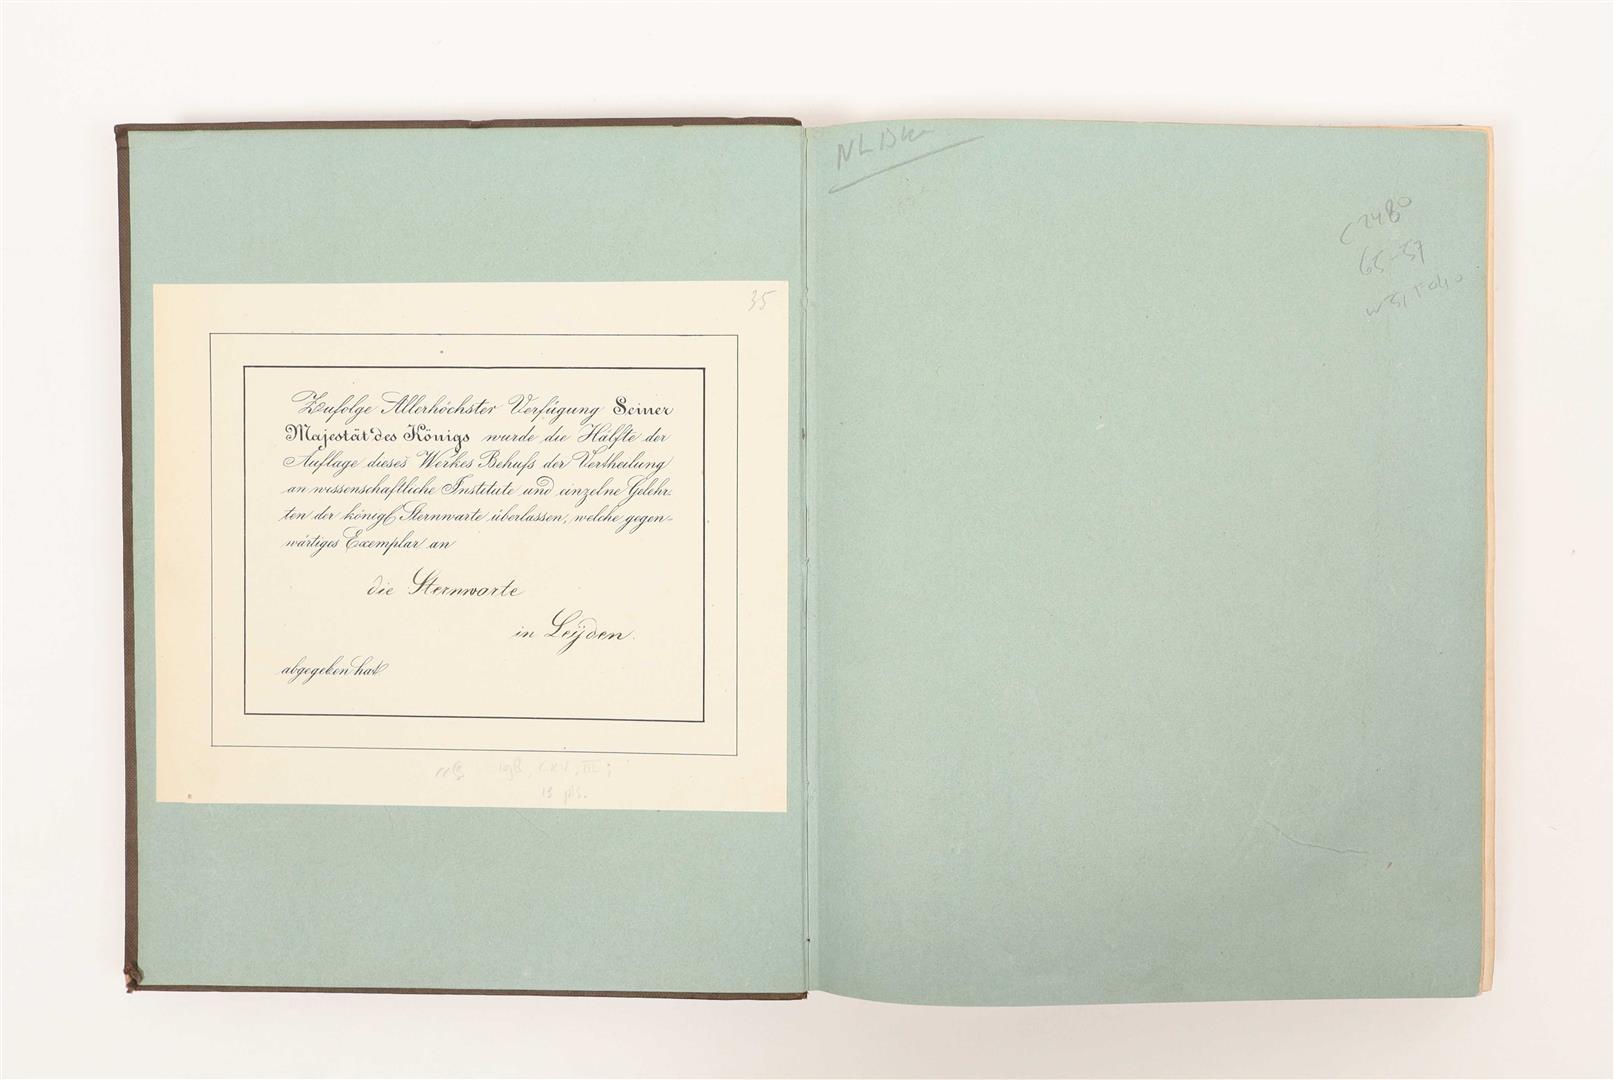 35
Zufolge Allerhöchster Verfügung Seiner
Majestät des Königs wurde die Hälfte der
Auflage dieses Werkes Behufs der Vertheilung
an wissenschaftliche Institute und einzelne Gelehr-
ten der königl. Sternwarte überlassen, welche gegen-
wärtiges Exemplar an
die Sternwarte
in Leÿden.
abgegeben hat.
198, CXV, III;
13 pls.
C 2480
65-57